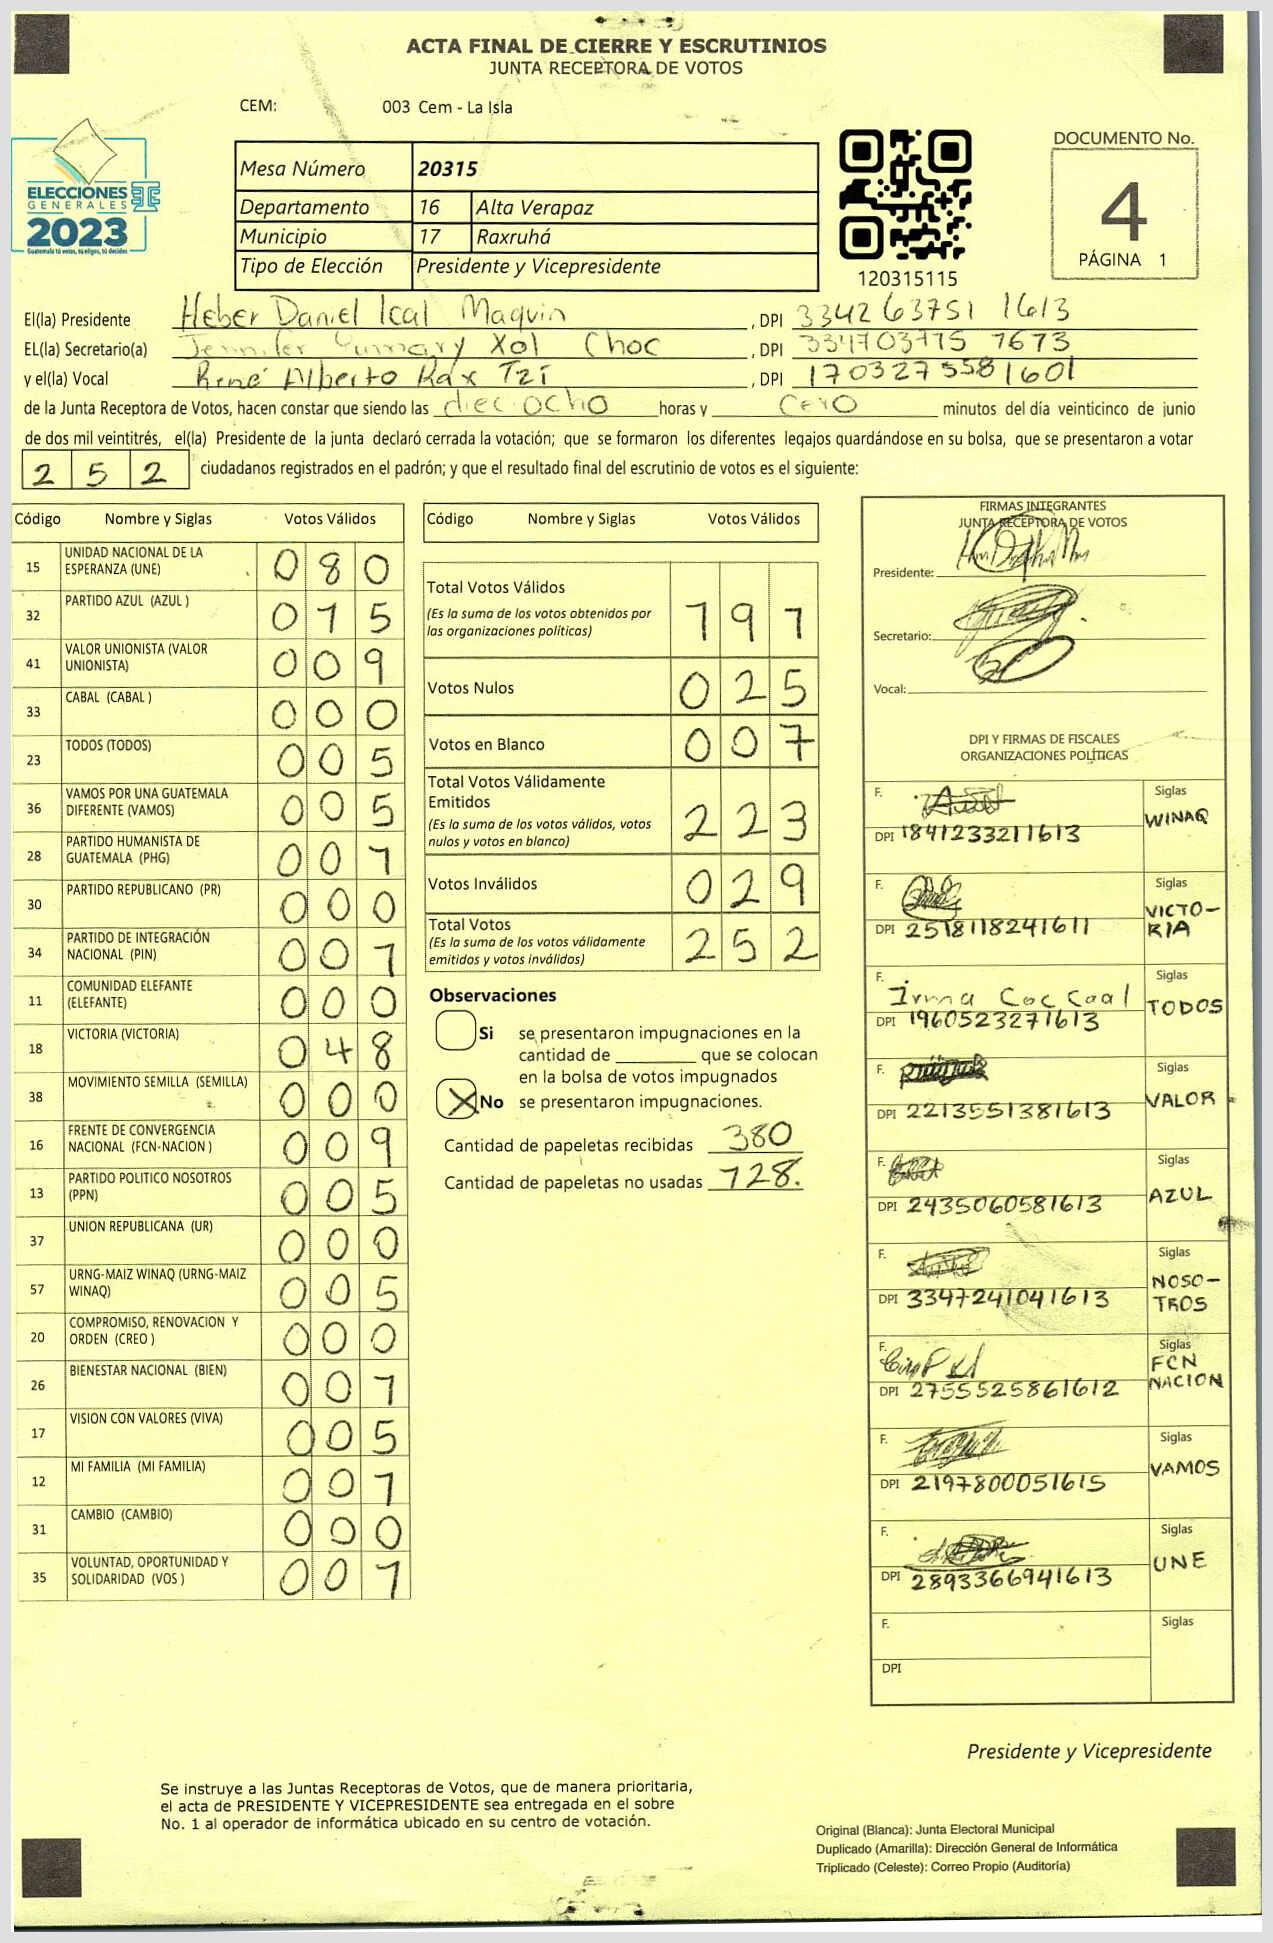 ACTA FINAL DE CIERRE Y ESCRUTINIOS
JUNTA RECEPTORA DE VOTOS
CEM: 003 Cem - La Isla
ELECCIONES
GENERALES
2023
Guatemala tú votas, tú eliges, tú decides
Mesa Número 20315
Departamento 16 Alta Verapaz
Municipio 17 Raxruhá
Tipo de Elección Presidente y Vicepresidente
120315115
DOCUMENTO No.
4
PÁGINA 1
El(la) Presidente Heber Daniel Ical Maquin , DPI 334263751 1613
EL(la) Secretario(a) Jennifer Xol Choc , DPI
y el(la) Vocal René Alberto Rax Tzi , DPI 1703273581601
de la Junta Receptora de Votos, hacen constar que siendo las dieciocho horas y cero minutos del día veinticinco de junio
de dos mil veintitrés, el(la) Presidente de la junta declaró cerrada la votación; que se formaron los diferentes legajos quardándose en su bolsa, que se presentaron a votar
252 ciudadanos registrados en el padrón; y que el resultado final del escrutinio de votos es el siguiente:
Código Nombre y Siglas Votos Válidos
15 UNIDAD NACIONAL DE LA ESPERANZA (UNE) 080
32 PARTIDO AZUL (AZUL ) 015
41 VALOR UNIONISTA (VALOR UNIONISTA) 009
33 CABAL (CABAL ) 000
23 TODOS (TODOS) 005
36 VAMOS POR UNA GUATEMALA DIFERENTE (VAMOS) 005
28 PARTIDO HUMANISTA DE GUATEMALA (PHG) 001
30 PARTIDO REPUBLICANO (PR) 000
34 PARTIDO DE INTEGRACIÓN NACIONAL (PIN) 001
11 COMUNIDAD ELEFANTE (ELEFANTE) 000
18 VICTORIA (VICTORIA) 048
38 MOVIMIENTO SEMILLA (SEMILLA) 000
16 FRENTE DE CONVERGENCIA NACIONAL (FCN-NACION ) 009
13 PARTIDO POLITICO NOSOTROS (PPN) 005
37 UNION REPUBLICANA (UR) 000
57 URNG-MAIZ WINAQ (URNG-MAIZ WINAQ) 005
20 COMPROMISO, RENOVACION Y ORDEN (CREO ) 000
26 BIENESTAR NACIONAL (BIEN) 001
17 VISION CON VALORES (VIVA) 005
12 MI FAMILIA (MI FAMILIA) 001
31 CAMBIO (CAMBIO) 000
35 VOLUNTAD, OPORTUNIDAD Y SOLIDARIDAD (VOS ) 001
Código Nombre y Siglas Votos Válidos
Total Votos Válidos 191
(Es la suma de los votos obtenidos por
las organizaciones políticas)
Votos Nulos 025
Votos en Blanco 007
Total Votos Válidamente
Emitidos 223
(Es la suma de los votos válidos, votos
nulos y votos en blanco)
Votos Inválidos 029
Total Votos 252
(Es la suma de los votos válidamente
emitidos y votos inválidos)
Observaciones
Si se presentaron impugnaciones en la
cantidad de ________ que se colocan
en la bolsa de votos impugnados
No se presentaron impugnaciones.
Cantidad de papeletas recibidas 380
Cantidad de papeletas no usadas 128.
FIRMAS INTEGRANTES
JUNTA RECEPTORA DE VOTOS
Presidente:
Secretario:
Vocal:
DPI Y FIRMAS DE FISCALES
ORGANIZACIONES POLÍTICAS
F. Siglas
DPI 1841233211613 WINAQ
F. Siglas
DPI 2518118241611 VICTO-RIA
F. Irma Coc Caal Siglas
DPI 1960523271613 TODOS
F. Siglas
DPI 2213551381613 VALOR
F. Siglas
DPI 2435060581613 AZUL
F. Siglas
DPI 3347241041613 NOSO-TROS
F. Siglas
DPI 2755525861612 FCN NACION
F. Siglas
DPI 2197800051615 VAMOS
F. Siglas
DPI 2893366941613 UNE
F. Siglas
DPI
Presidente y Vicepresidente
Se instruye a las Juntas Receptoras de Votos, que de manera prioritaria,
el acta de PRESIDENTE Y VICEPRESIDENTE sea entregada en el sobre
No. 1 al operador de informática ubicado en su centro de votación.
Original (Blanca): Junta Electoral Municipal
Duplicado (Amarilla): Dirección General de Informática
Triplicado (Celeste): Correo Propio (Auditoría)